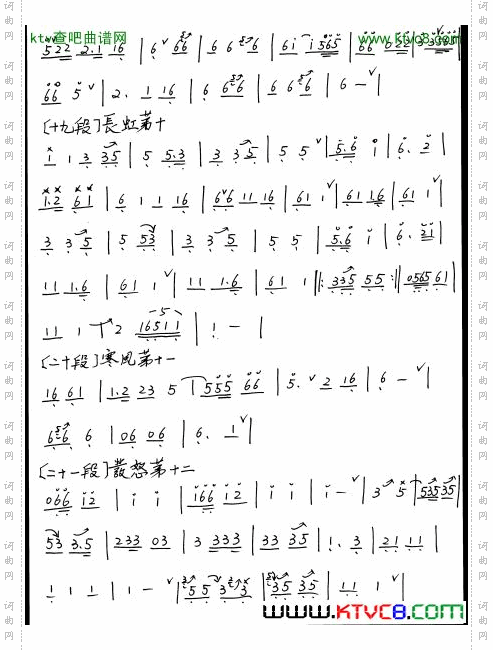 ktvc查吧曲谱网
www.ktvc8.com
522 2.1 16 | 6 66 | 6 6 6 | 6i i 565 | 66 022 |
66 5 | 2. 1 16 | 6 6 6 | 6 6 6 | 6 - |
〔十九段〕長虹第十
1 1 3 35 | 5 5.3 | 3 3 5 | 5 5 | 5.6 i | 6. 2 |
1.2 61 | 6 1 1 16 | 666 11 16 | 61 1 | 61 1.6 | 61 1 |
3 3 5 | 5 53 | 3 3 5 | 5 5 | 5.6 i | 6. 21 |
11 1.6 | 61 1 | 11 1.6 | 61 1 |: 335 55 :| 0565 61 |
11 1 | 2 16511 | 1 - |
〔二十段〕寒风第十一
16 61 | 1.2 23 5 | 555 66 | 5. 2 16 | 6 - |
6 6 6 | 06 06 | 6. 1 |
〔二十一段〕發怒第十二
066 i2 | i i | i66 i2 | i i | i - | 3 5 | 535 35 |
53 3.5 | 233 03 | 3 333 | 33 35 | 1. 3 | 21 11 |
1 1 1 | 1 - | 55 3 3 | 35 35 | 11 1 |
www.KTVC8.com
词曲网